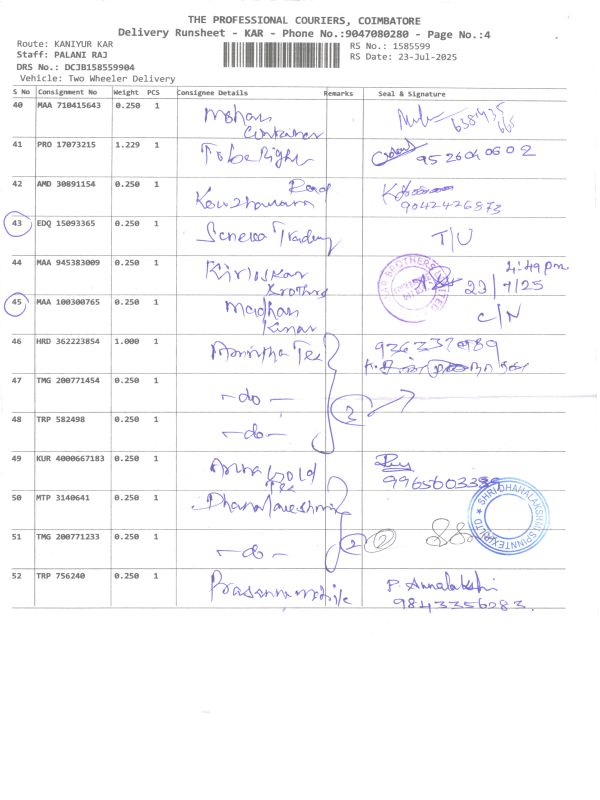 THE PROFESSIONAL COURIERS, COIMBATORE
Delivery Runsheet - KAR - Phone No.:9047080280 - Page No.:4
Route: KANIYUR KAR
RS No.: 1585599
Staff: PALANI RAJ
RS Date: 23-Jul-2025
DRS No.: DCJB158559904
Vehicle: Two Wheeler Delivery
S No Consignment No Weight PCS Consignee Details Remarks Seal & Signature
40 MAA 710415643 0.250 1 Mohan
Container
41 PRO 17073215 1.229 1 To be Right 95 2604 0602
42 AMD 30891154 0.250 1 Road
9042426873
43 EDQ 15093365 0.250 1 Trading T/U
44 MAA 945383009 0.250 1 Kirloskar 4:49pm
23/7/25
45 MAA 100300765 0.250 1 Madhan
Kumar C/N
46 HRD 362223854 1.000 1 Amirtha Tex
47 TMG 200771454 0.250 1 -do- 2
48 TRP 582498 0.250 1 -do-
49 KUR 4000667183 0.250 1 Anna Gold
Tex
50 MTP 3140641 0.250 1
SHRI DHANALAKSHMI SPINNTEX (P) LTD
51 TMG 200771233 0.250 1 -do- 2 2
52 TRP 756240 0.250 1 P. Annalakshi
9843356283